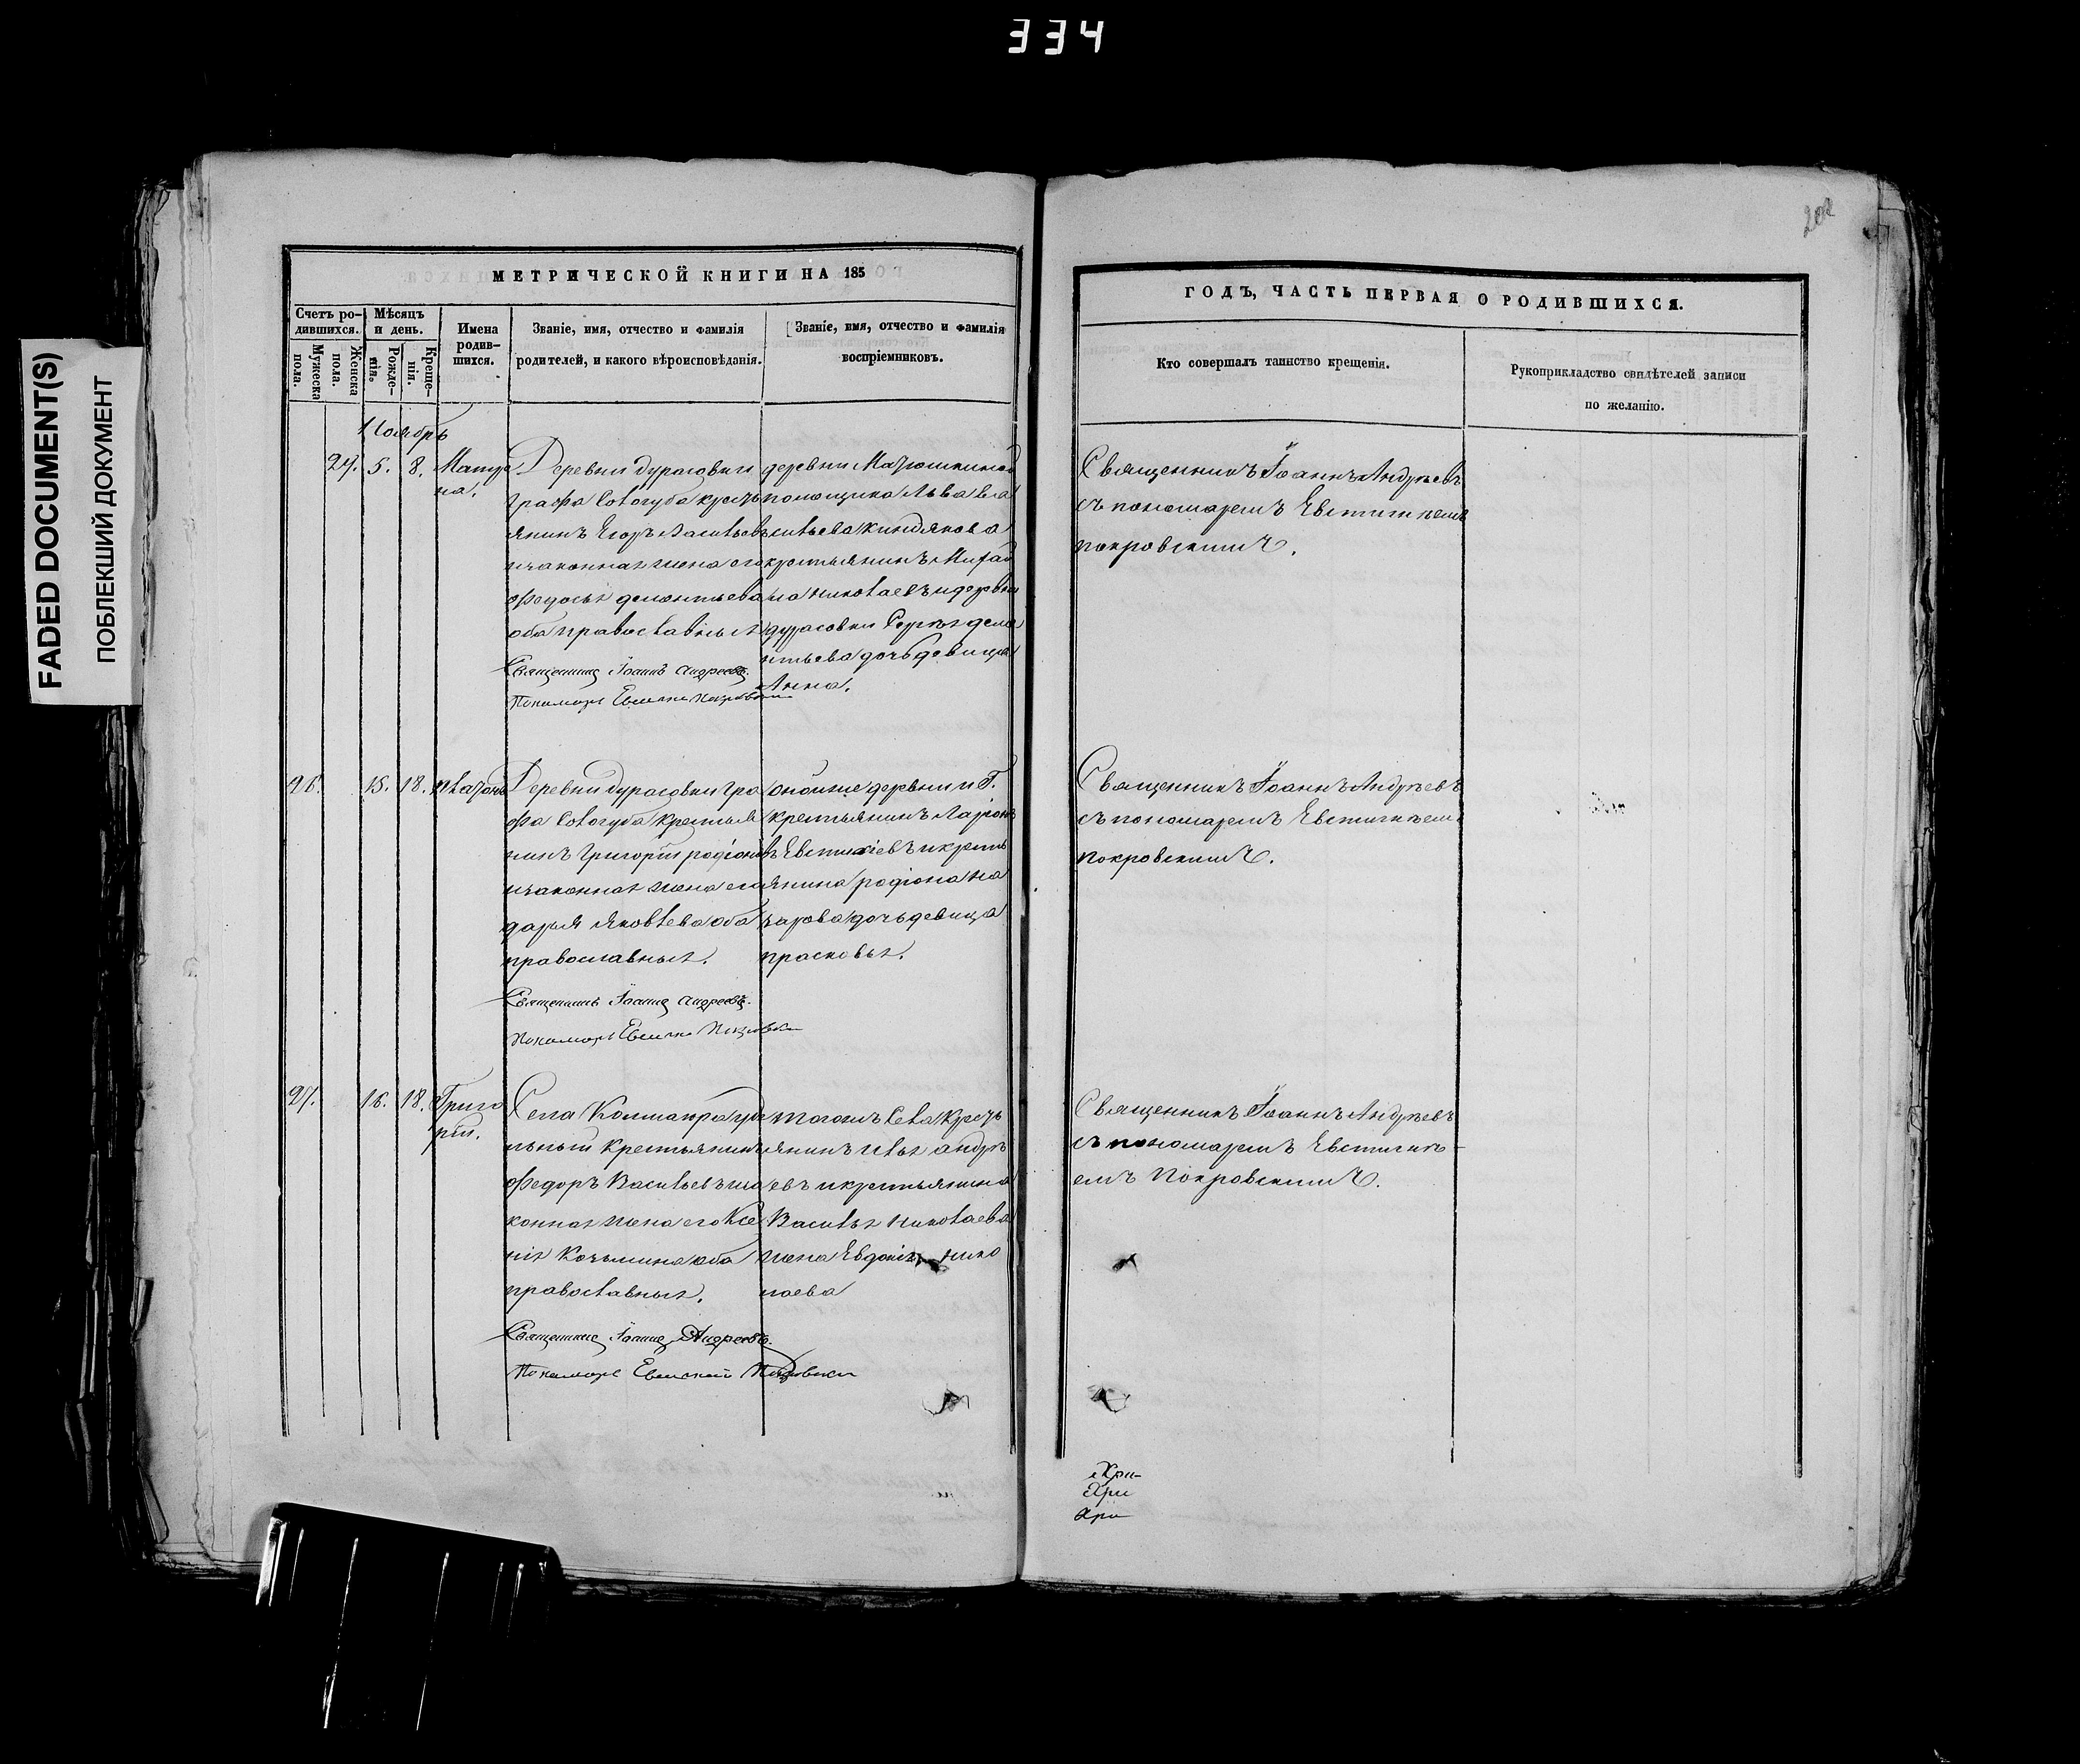 334
FADED DOCUMENT(S)
ПОБЛЕКШИЙ ДОКУМЕНТ
МЕТРИЧЕСКОЙ КНИГИ НА 185
Счетъ ро-
дившихся.
Мужеска
пола.
Женска
пола.
Мѣсяцъ
и день.
Рожде-
нія.
Креще-
нія.
Имена
родив-
шихся.
Званіе, имя, отчество и фамилія
родителей, и какого вѣроисповѣданія.
Званіе, имя, отчество и фамилія
воспріемниковъ.
Ноябрь
24. 5. 8. Матро
на.
Деревни дурасовки
графа Сологуба кресть
янинъ Егоръ Васильевъ
изаконная жена его
Федосья дементьева
оба православныя
Священникъ Іоаннъ Андреевъ.
Пономарь
деревни Матюшкиной
помощика Льва Ва
сильева Киндякова
крестьянинъ Михай
ла Николаевъ идеревни
дурасовки Сергея деме
нтьева дочь девица
Анна.
26. 15. 18. Платонъ
Деревни дурасовки гра
фа Сологуба крестья
нинъ Григорій родіоновъ
изаконная жена его
дарья Яковлева оба
православныя.
Священникъ Іоаннъ Андреевъ.
Пономарь
онойже деревни и Г.
крестьянинъ Ларіонъ
Евстихіевъ икресть
янина родіона На
зарова дочь девица
прасковья.
27. 16. 18. Григо
рій.
Села
льный крестьянинъ
Федоръ Васильевъ иза
конная жена его Ксе
нія Козьмина оба
православныя.
Священникъ Іоаннъ Андреевъ.
Пономарь
тогожъ Села кресть
янинъ Илья андре
евъ икрестьянина
Василья Николаева
жена Евдокія Нико
лаева
202
ГОДЪ, ЧАСТЬ ПЕРВАЯ О РОДИВШИХСЯ.
Кто совершалъ таинство крещенія.
Рукоприкладство свидѣтелей записи
по желанію.
Священникъ Іоаннъ Андреевъ
съ пономаремъ Евстигнеемъ
покровскимъ.
Священникъ Іоаннъ Андреевъ
съ пономаремъ Евстигнеемъ
покровскимъ.
Священникъ Іоаннъ Андреевъ
съ пономаремъ Евстигне-
емъ Покровскимъ.
Хри-
Хри
Хри